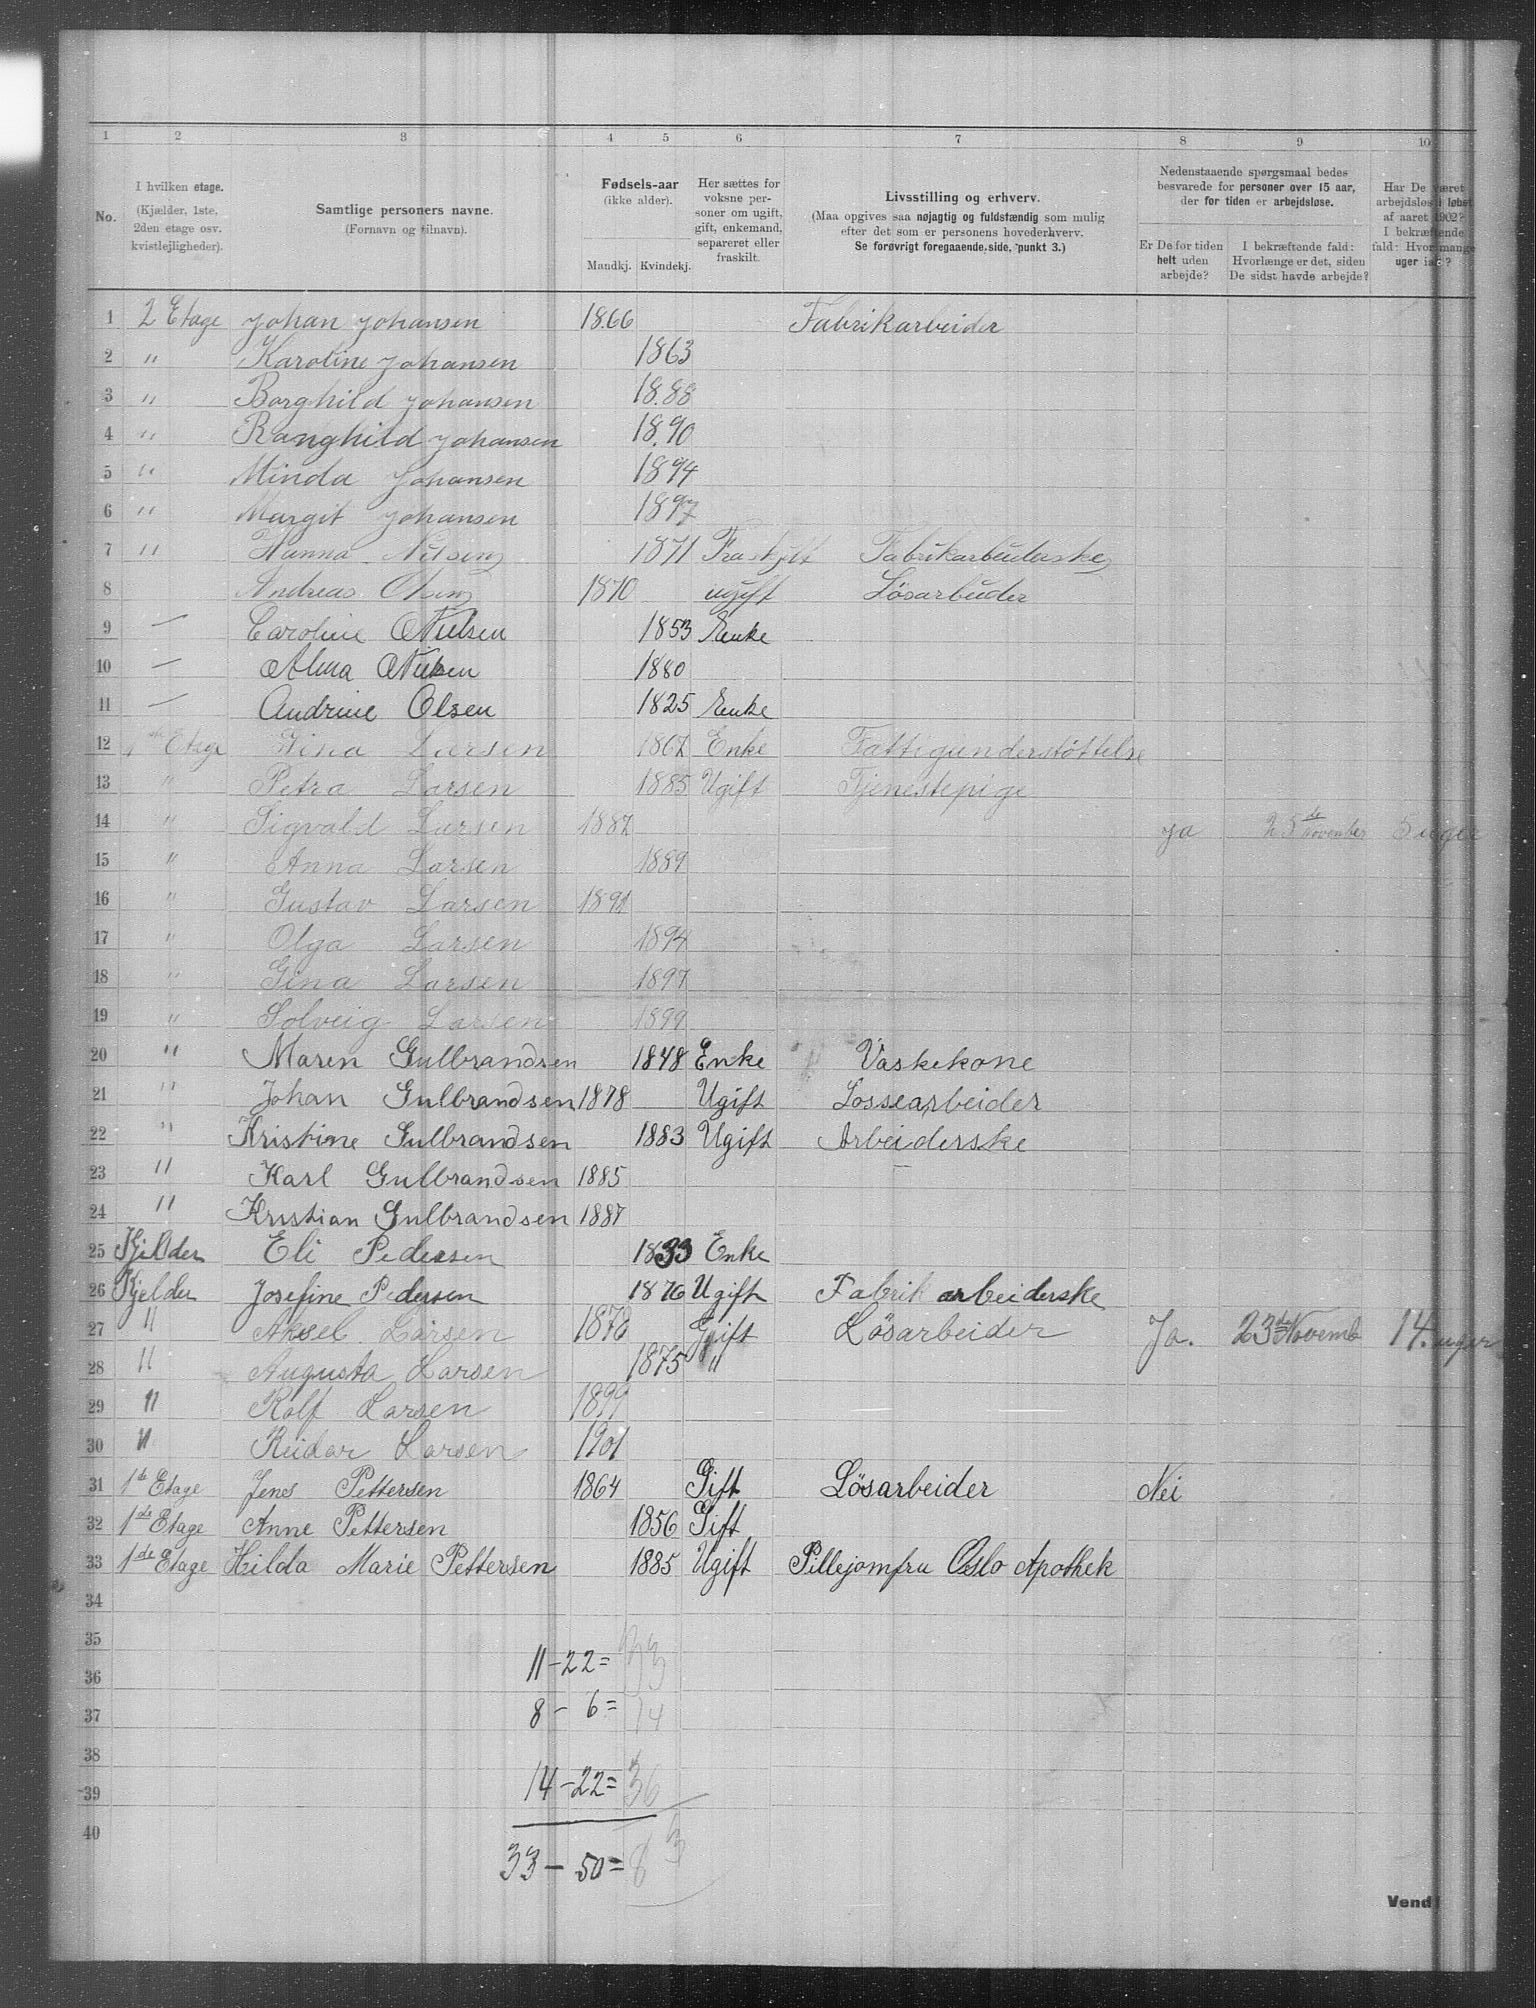 1 2 3 4 5 6 7 8 9 10
No.
I hvilken etage.
(Kjælder, 1ste,
2den etage osv.
kvistlejligheder).
Samtlige personers navne.
(Fornavn og tilnavn).
Fødsels-aar
(ikke alder).
Mandkj. Kvindekj.
Her sættes for
voksne per-
soner om ugift,
gift, enkemand,
separeret eller
fraskilt.
Livsstilling og erhverv.
(Maa opgives saa nøjagtig og fuldstændig som mulig
efter det som er personens hovederhverv.
Se forøvrigt foregaaende side, punkt 3.)
Nedenstaaende spørgsmaal bedes
besvarede for personer over 15 aar,
der for tiden er arbejdsløse.
Er De for tiden
helt uden
arbejde?
I bekræftende fald:
Hvorlænge er det, siden
De sidst havde arbejde?
Har De været
arbejdsløs i løbet
af aaret 1902?
I bekræftende
fald: Hvor mange
uger ialt?
1 2 Etage Johan Johansen 1866 Fabrikarbeider
2 " Karoline Johansen 1863
3 " Borghild Johansen 1888
4 " Ranghild Johansen 1890
5 " Minda Johansen 1894
6 " Margit Johansen 1897
7 " Hanna Nilsen 1871 Fraskilt Fabrikarbeiderske
8 Andreas Olsen 1870 ugift Løsarbeider
9 — Caroline Nielsen 1853 Enke
10 — Alma Nielsen 1880
11 — Andrine Olsen 1825 Enke
12 1ste Etage Gina Larsen 1862 Enke Fattigunderstøttelse
13 " Petra Larsen 1885 Ugift Tjenestepige
14 " Sigvald Larsen 1887 ja 25de November 5 uger
15 " Anna Larsen 1889
16 " Gustav Larsen 1891
17 " Olga Larsen 1894
18 " Gina Larsen 1897
19 " Solveig Larsen 1899
20 " Maren Gulbrandsen 1848 Enke Vaskekone
21 " Johan Gulbrandsen 1878 Ugift Lossearbeider
22 " Kristine Gulbrandsen 1883 Ugift Arbeiderske
23 " Karl Gulbrandsen 1885
24 " Kristian Gulbrandsen 1887
25 Kjelder Eli Pedersen 1833 Enke
26 Kjelder Josefine Pedersen 1876 Ugift Fabrik arbeiderske
27 " Aksel Larsen 1876 Gift Løsarbeider Ja. 23de Novemb 14. uger
28 " Augusta Larsen 1875 "
29 " Rolf Larsen 1899
30 " Reidar Larsen 1901
31 1de Etage Jens Pettersen 1864 Gift Løsarbeider Nei
32 1de Etage Anne Pettersen 1856 Gift
33 1de Etage Hilda Marie Pettersen 1885 Ugift Pillejomfru Oslo Apothek
34
35
36 11-22=33
37 8-6=14
38
39 14-22=36
40
33-50=83
Vend!